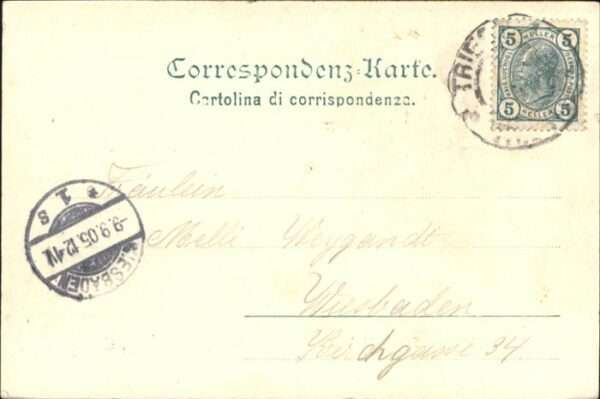 Correspondenz-Karte.
Cartolina di corrispondenza.
5 HELLER 5
5 HELLER 5
TRIES
Fräulein
Melli Weygandt
Wiesbaden
Kirchgasse 34
* 1 s
-9.9.05.12-1N.
WIESBADEN